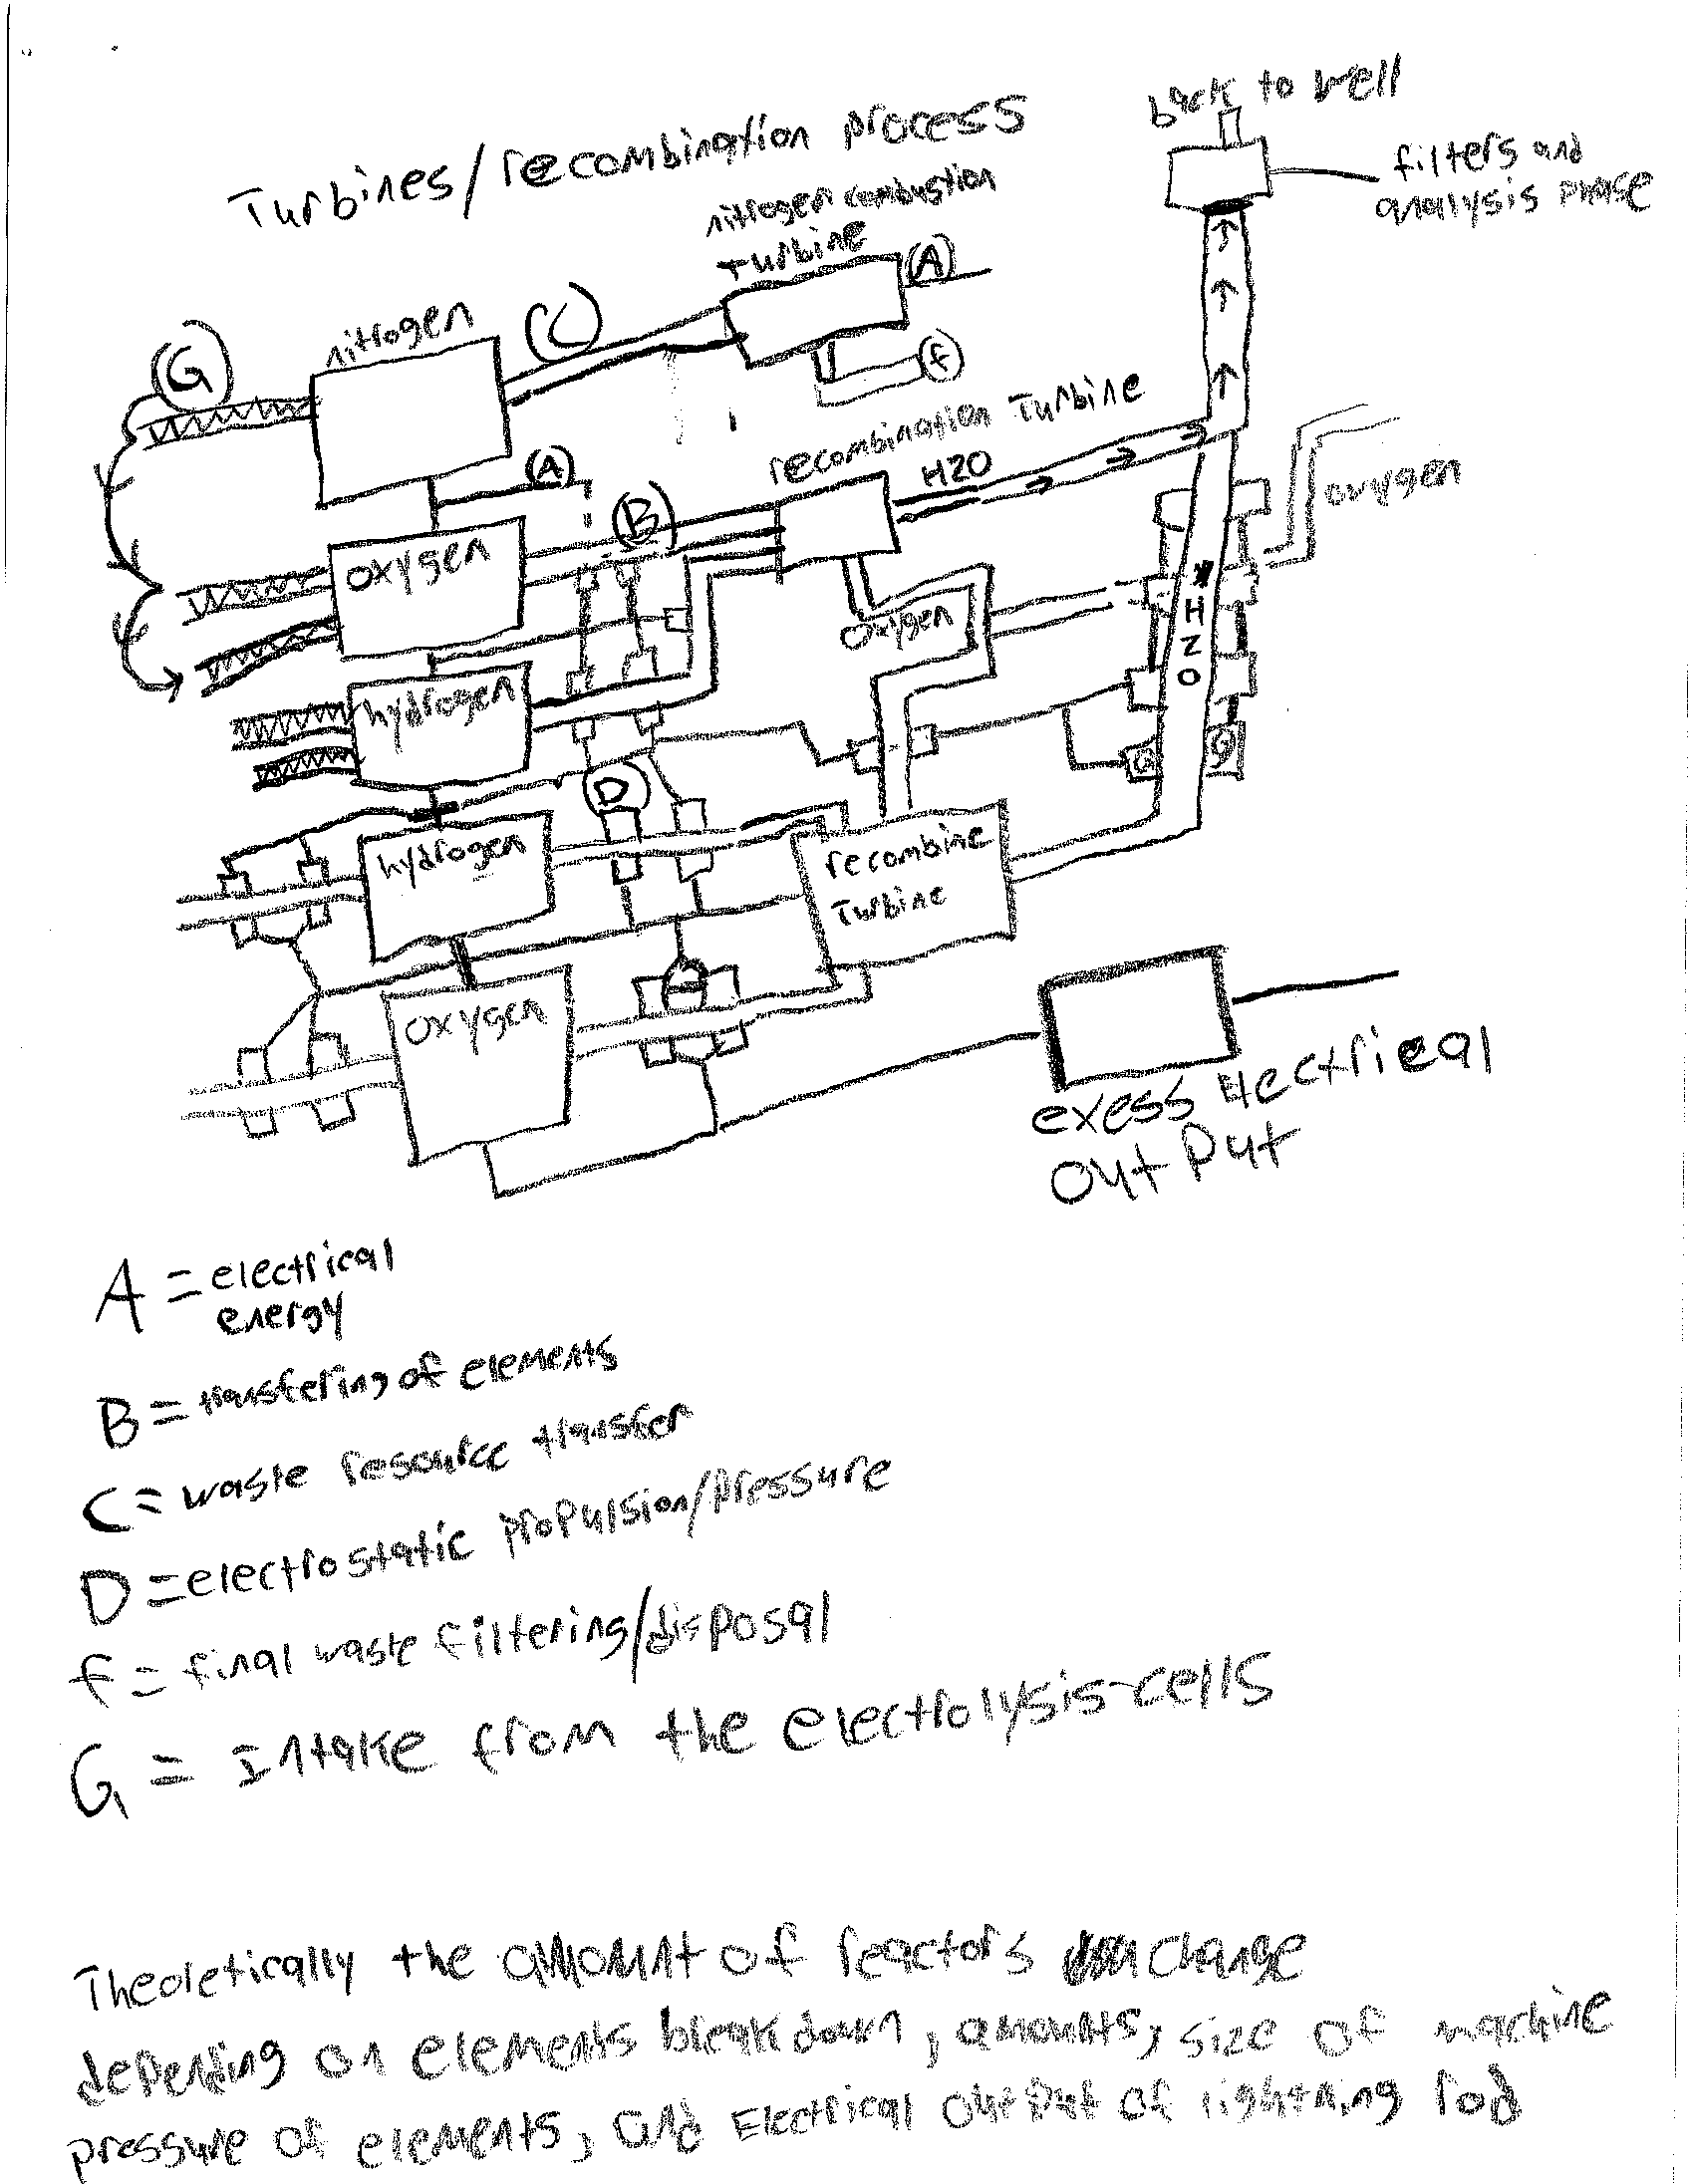 back to well
Turbines/recombination process
filters and
analysis phase
nitrogen combustion
Turbine
(A)
nitrogen
(C)
(G)
(f)
recombination Turbine
H2O
(A)
(B)
oxygen
oxygen
oxygen
H2O
hydrogen
(D)
hydrogen
recombine
Turbine
oxygen
exess Electrical
Out Put
A = electrical
energy
B = transfering of elements
C = waste resource transfer
D = electrostatic propulsion/pressure
f = final waste filtering/disposal
G = Intake from the electrolysis-cells
Theoletically the amount of reactors change
depending on elements breakdown, amounts, size of machine
pressure of elements, and Electrical OutPut of lightning rod